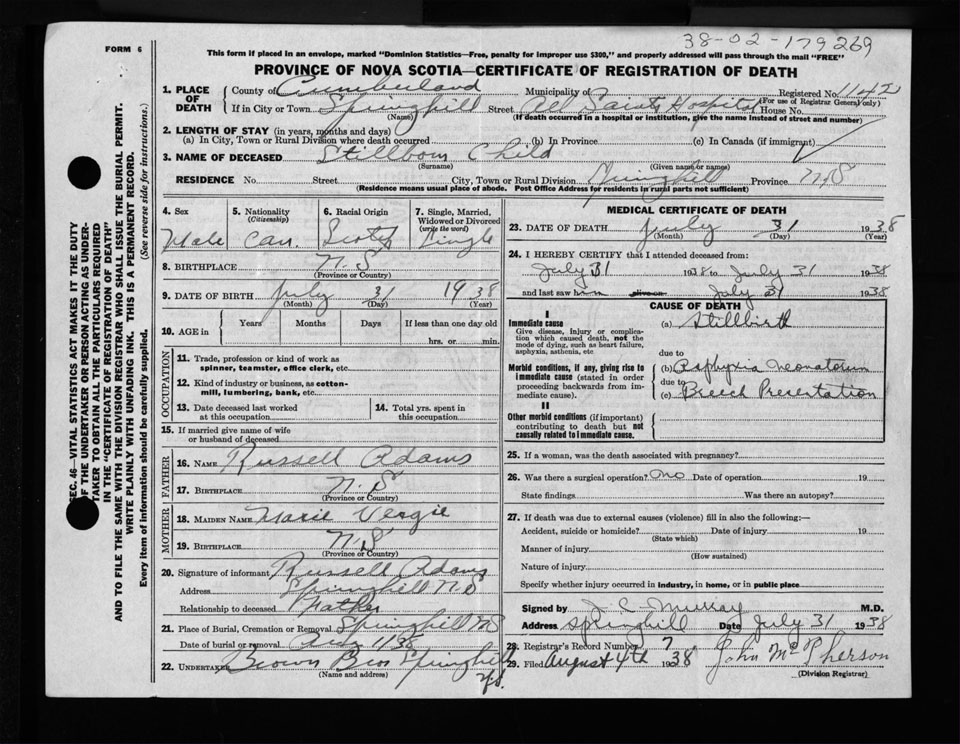 38-02-179269
FORM 6
This form if placed in an envelope, marked "Dominion Statistics—Free, penalty for improper use $300," and properly addressed will pass through the mail "FREE"
PROVINCE OF NOVA SCOTIA—CERTIFICATE OF REGISTRATION OF DEATH
1. PLACE OF DEATH County of Cumberland Municipality of Registered No. 1142
(For use of Registrar General only)
If in City or Town Springhill Street All Saints Hospital House No.
(Name) (If death occurred in a hospital or institution, give the name instead of street and number)
2. LENGTH OF STAY (in years, months and days)
(a) In City, Town or Rural Division where death occurred (b) In Province (c) In Canada (if immigrant)
3. NAME OF DECEASED Stillborn Child
(Surname) (Given name or names)
RESIDENCE No. Street City, Town or Rural Division Springhill Province N.S
(Residence means usual place of abode. Post Office Address for residents in rural parts not sufficient)
4. Sex 5. Nationality (Citizenship) 6. Racial Origin 7. Single, Married, Widowed or Divorced (write the word)
Male Can. Scotch Single
8. BIRTHPLACE N.S
(Province or Country)
9. DATE OF BIRTH July 31 1938
(Month) (Day) (Year)
10. AGE in Years Months Days If less than one day old
hrs. or min.
OCCUPATION
11. Trade, profession or kind of work as spinner, teamster, office clerk, etc.
12. Kind of industry or business, as cotton-mill, lumbering, bank, etc.
13. Date deceased last worked at this occupation
14. Total yrs. spent in this occupation
15. If married give name of wife or husband of deceased
FATHER
16. NAME Russell Adams
17. BIRTHPLACE N.S
(Province or Country)
MOTHER
18. MAIDEN NAME Marie Vergie
19. BIRTHPLACE N.S
(Province or Country)
20. Signature of informant Russell Adams
Address Springhill N.S
Relationship to deceased Father
21. Place of Burial, Cremation or Removal Springhill NS
Date of burial or removal Aug 1/38
22. UNDERTAKER Brown Bros Springhill
(Name and address) N.S.
MEDICAL CERTIFICATE OF DEATH
23. DATE OF DEATH July 31 1938
(Month) (Day) (Year)
24. I HEREBY CERTIFY that I attended deceased from:
July 31 1938 to July 31 1938
and last saw him alive on July 31 1938
CAUSE OF DEATH
I
Immediate cause (a) Stillbirth
Give disease, injury or complication which caused death, not the mode of dying, such as heart failure, asphyxia, asthenia, etc
due to
Morbid conditions, if any, giving rise to immediate cause (stated in order proceeding backwards from immediate cause).
(b) Asphyxia Neonatorum
due to
(c) Breech Presentation
II
Other morbid conditions (if important) contributing to death but not causally related to immediate cause.
25. If a woman, was the death associated with pregnancy?
26. Was there a surgical operation? no Date of operation 19
State findings Was there an autopsy?
27. If death was due to external causes (violence) fill in also the following:—
Accident, suicide or homicide? Date of injury 19
(State which)
Manner of injury
(How sustained)
Nature of injury
Specify whether injury occurred in industry, in home, or in public place
Signed by J. C. Murray M.D.
Address Springhill Date July 31 1938
28. Registrar's Record Number 7
29. Filed August 4th 1938 John McPherson
(Division Registrar)
SEC. 46—VITAL STATISTICS ACT MAKES IT THE DUTY
OF THE UNDERTAKER OR PERSON ACTING AS UNDERTAKER
TO OBTAIN ALL THE PARTICULARS REQUIRED
IN THE "CERTIFICATE OF REGISTRATION OF DEATH"
AND TO FILE THE SAME WITH THE DIVISION REGISTRAR WHO SHALL ISSUE THE BURIAL PERMIT.
WRITE PLAINLY WITH UNFADING INK. THIS IS A PERMANENT RECORD.
Every item of information should be carefully supplied. (See reverse side for instructions.)